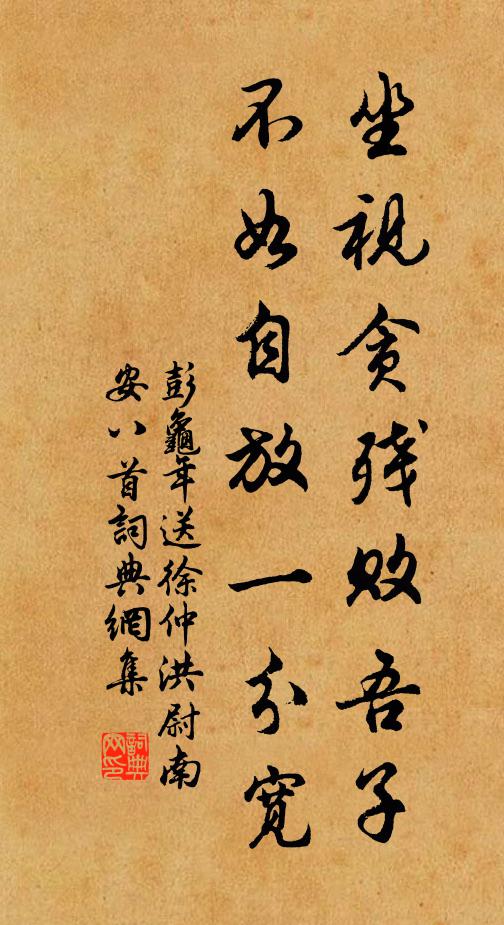 坐視貪残敗吾子
不如自放一分寬
彭龜年送徐仲洪尉南
安八首詞典網集
詞典
网印